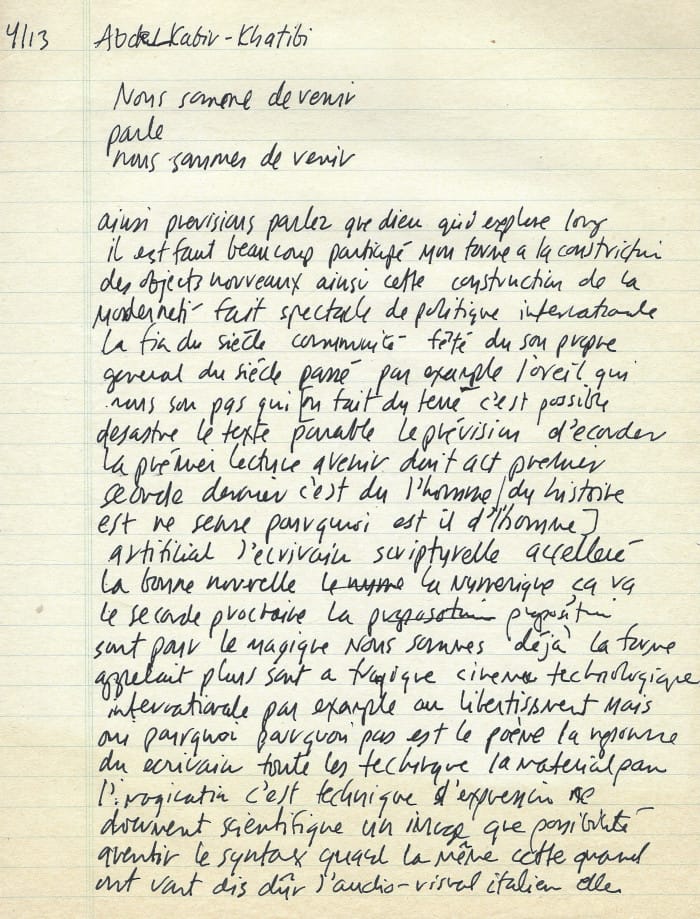 4/13 Abdel Kabir-Khatibi
Nous somone de venir
parle
nous sommes de venir
ainsi previsions parlez que dieu qu'il explore long
il est faut beaucoup participé mon forme a la constriction
des objects nouveaux ainsi cette construction de la
moderneti fait spectacle de politique internationale
la fin du siécle communité fêté du son propre
general du siécle passé par example l'oreil qui
nous son pas qui [on fait du terre c'est possible
desastre le texte la prévision d'ecorder
la prémier lecture avenir doit act premier
seconde dernier c'est du l'homme / du histoire
est ne sense pourquoi est il d'l'homme]
artificial l'écrivain scripturelle accelleré
la bonne nouvelle la numerique ça va
le seconde prochaine la proposition proposition
sont pour le magique Nous sommes déjà la forme
appelait plurs sont a tragique cinema technologique
internationale par example ou libertissment mais
oui pourquoi pourquoi pas est le poème la
du ecrivain toute les technique la material pour
l'imagination c'est technique d'expression ne
document scientifique un image que possibilité
aventir le syntax quand la même cette quand
ont vont dis dûr l'audio-visual italien elle